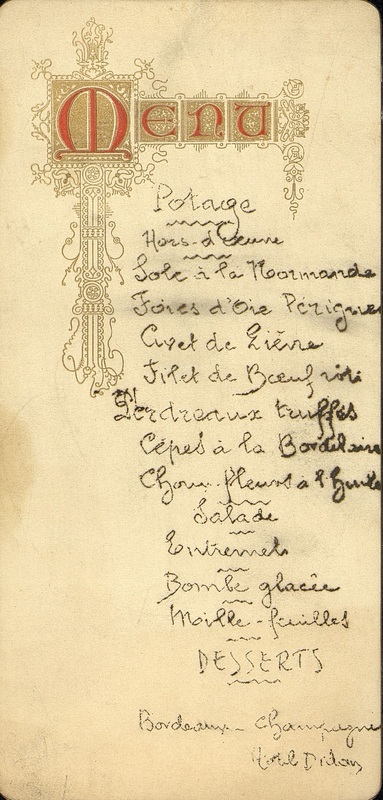 MENU
Potage
Hors-d'Œuvre
Sole à la Normande
Foies d'Oie Périgueu
Civet de Lièvre
Filet de Bœuf rôti
Perdreaux truffés
Cèpes à la Bordelaise
Choux-fleurs à l'Huile
Salade
Entremets
Bombe glacée
Mille-feuilles
DESSERTS
Bordeaux - Champagne
Hôtel